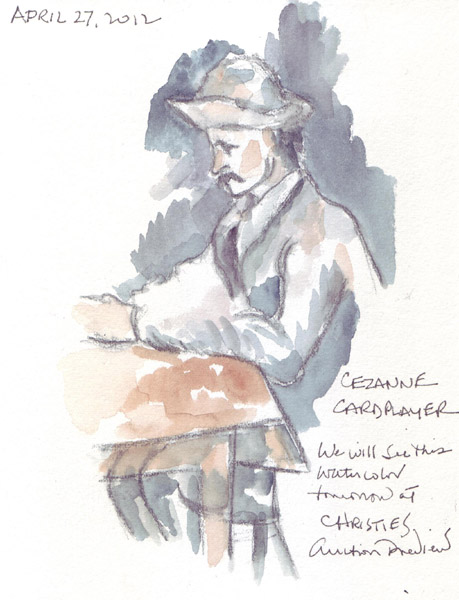 APRIL 27, 2012
CEZANNE
CARDPLAYER
We will see this
watercolor
tomorrow at
CHRISTIES
Auction Preview